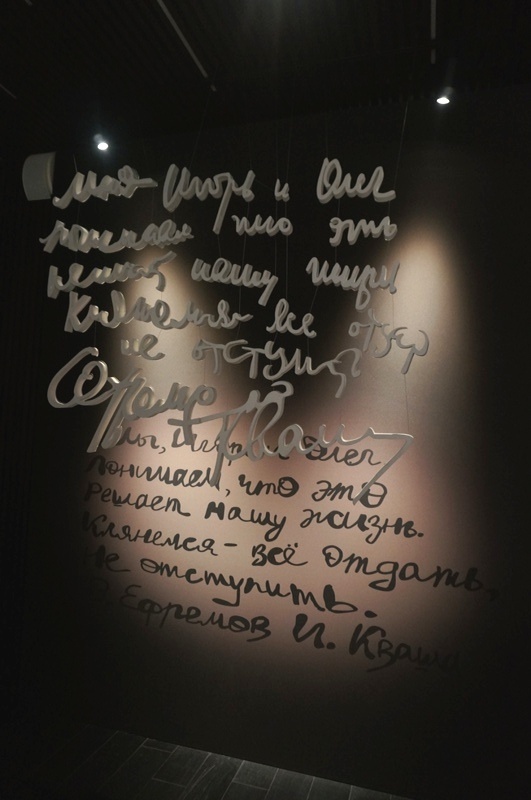 мы Игорь и Олег
понимаем что это
решает нашу жизнь
Клянемся все отдать
не отступить
Ефремов
Кваша
Мы, Игорь и Олег
понимаем, что это
решает нашу жизнь.
Клянемся – всё отдать,
не отступить.
О. Ефремов И. Кваша